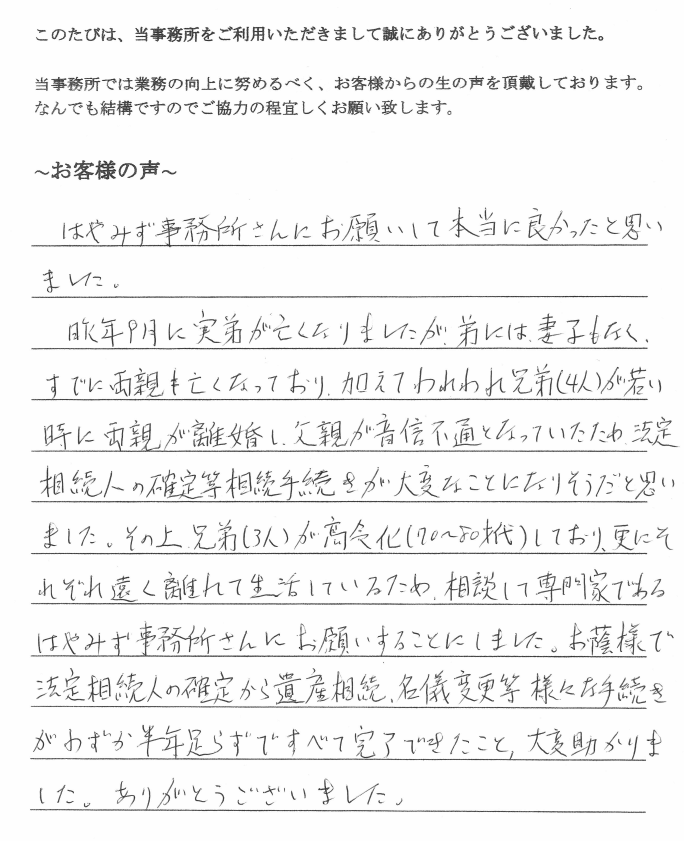 このたびは、当事務所をご利用いただきまして誠にありがとうございました。
当事務所では業務の向上に努めるべく、お客様からの生の声を頂戴しております。
なんでも結構ですのでご協力の程宜しくお願い致します。
~お客様の声~
はやみず事務所さんにお願いして本当に良かったと思い
ました。
昨年9月に実弟が亡くなりましたが、弟には妻子もなく、
すでに両親も亡くなっており、加えてわれわれ兄弟(4人)が若い
時に両親が離婚し、父親が音信不通となっていたため、法定
相続人の確定等相続手続きが大変なことになりそうだと思い
ました。その上、兄弟(3人)が高令化(70~80才代)しており、更にそ
れぞれ遠く離れて生活しているため、相談して専門家である
はやみず事務所さんにお願いすることにしました。お蔭様で
法定相続人の確定から遺産相続、名儀変更等様々な手続き
がわずか半年足らずですべて完了できたこと、大変助かりま
した。ありがとうございました。